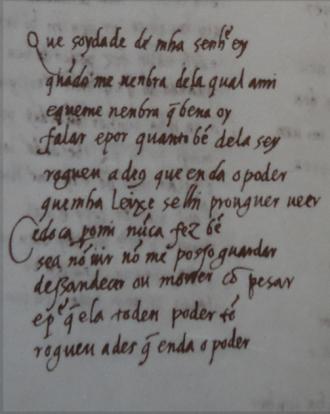 Que soydade de mha senhʳ ey
quãdo me nenbra dela qual a ui
e que me nenbra q̃ ben a oy
falar e por quanto bẽ dela sey
rogueu a des que end a o poder
que mha leixe se lhi prouguer ueer
Cedo ca pomi nũca fez bẽ
sea nõ uir nõ me posso guardar
dessandecer ou morrer cõ pesar
e pʳ q̃ ela tod en poder tẽ
rogueu a des q̃ end a o poder